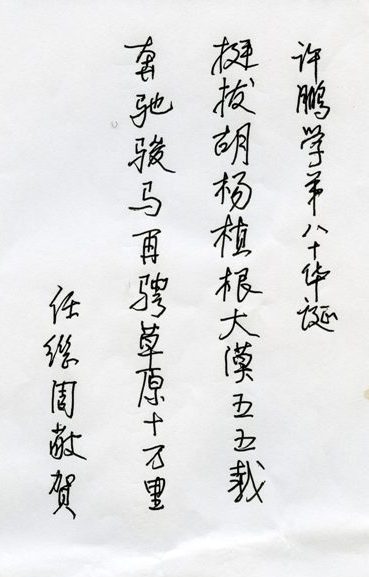 许鹏学弟八十华诞
挺拔胡杨植根大漠五五载
奔驰骏马再骋草原十万里
任继周敬贺